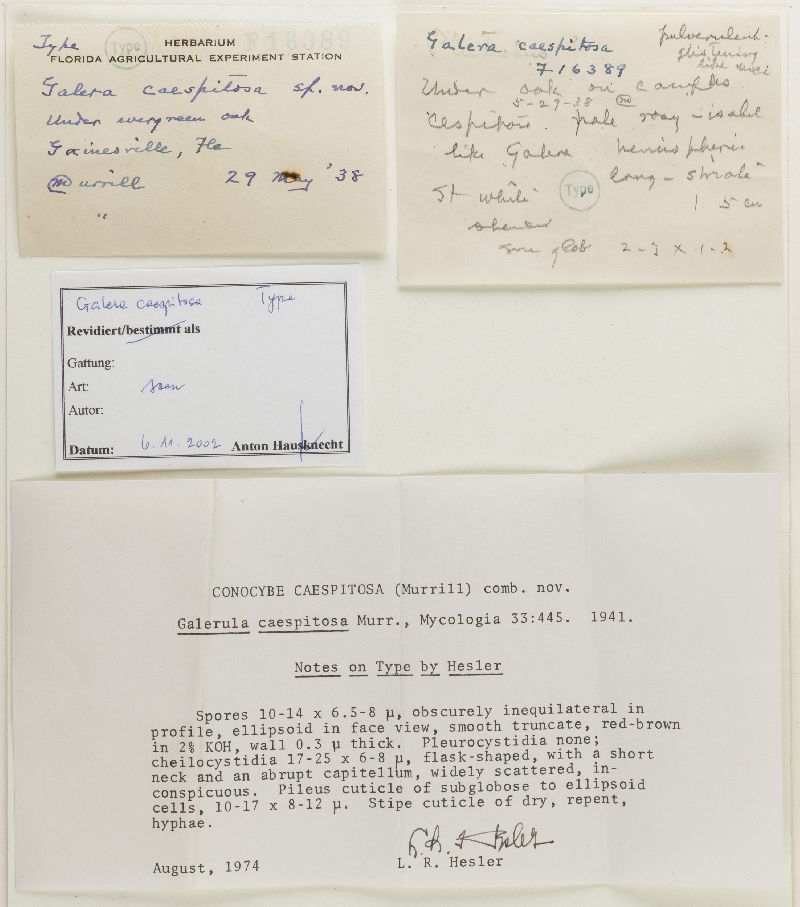 Type Type F16389
HERBARIUM
FLORIDA AGRICULTURAL EXPERIMENT STATION
Galera caespitosa sp. nov.
Under evergreen oak
Gainesville, Fla
Murrill 29 May '38
"
Galera caespitosa
716389
pulverulent -
glistening
like mica
Under oak on campus
5-29-38 m
Cespitose. pale rosy-isabel
like Galera hemispheric
long-striate
St white Type ! 5 cm
slender
2-3 x 1-2
Galera caespitosa Type
Revidiert/bestimmt als
Gattung:
Art:
Autor:
Datum: 6.11.2002 Anton Hausknecht
CONOCYBE CAESPITOSA (Murrill) comb. nov.
Galerula caespitosa Murr., Mycologia 33:445. 1941.
Notes on Type by Hesler
Spores 10-14 x 6.5-8 μ, obscurely inequilateral in
profile, ellipsoid in face view, smooth truncate, red-brown
in 2% KOH, wall 0.3 μ thick. Pleurocystidia none;
cheilocystidia 17-25 x 6-8 μ, flask-shaped, with a short
neck and an abrupt capitellum, widely scattered, in-
conspicuous. Pileus cuticle of subglobose to ellipsoid
cells, 10-17 x 8-12 μ. Stipe cuticle of dry, repent,
hyphae.
L. R. Hesler
August, 1974 L. R. Hesler